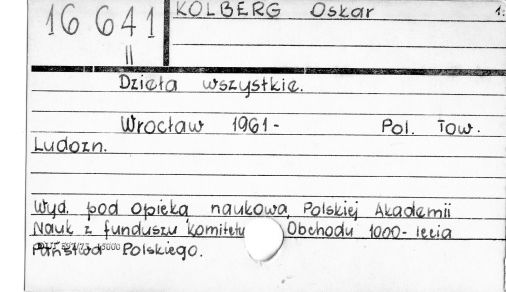 16 641
II
KOLBERG Oskar 1.
Dzieła wszystkie.
Wrocław 1961- Pol. Tow.
Ludozn.
Wyd. pod opieką naukową Polskiej Akademii
Nauk z funduszu komitetu Obchodu 1000-lecia
Państwa Polskiego.